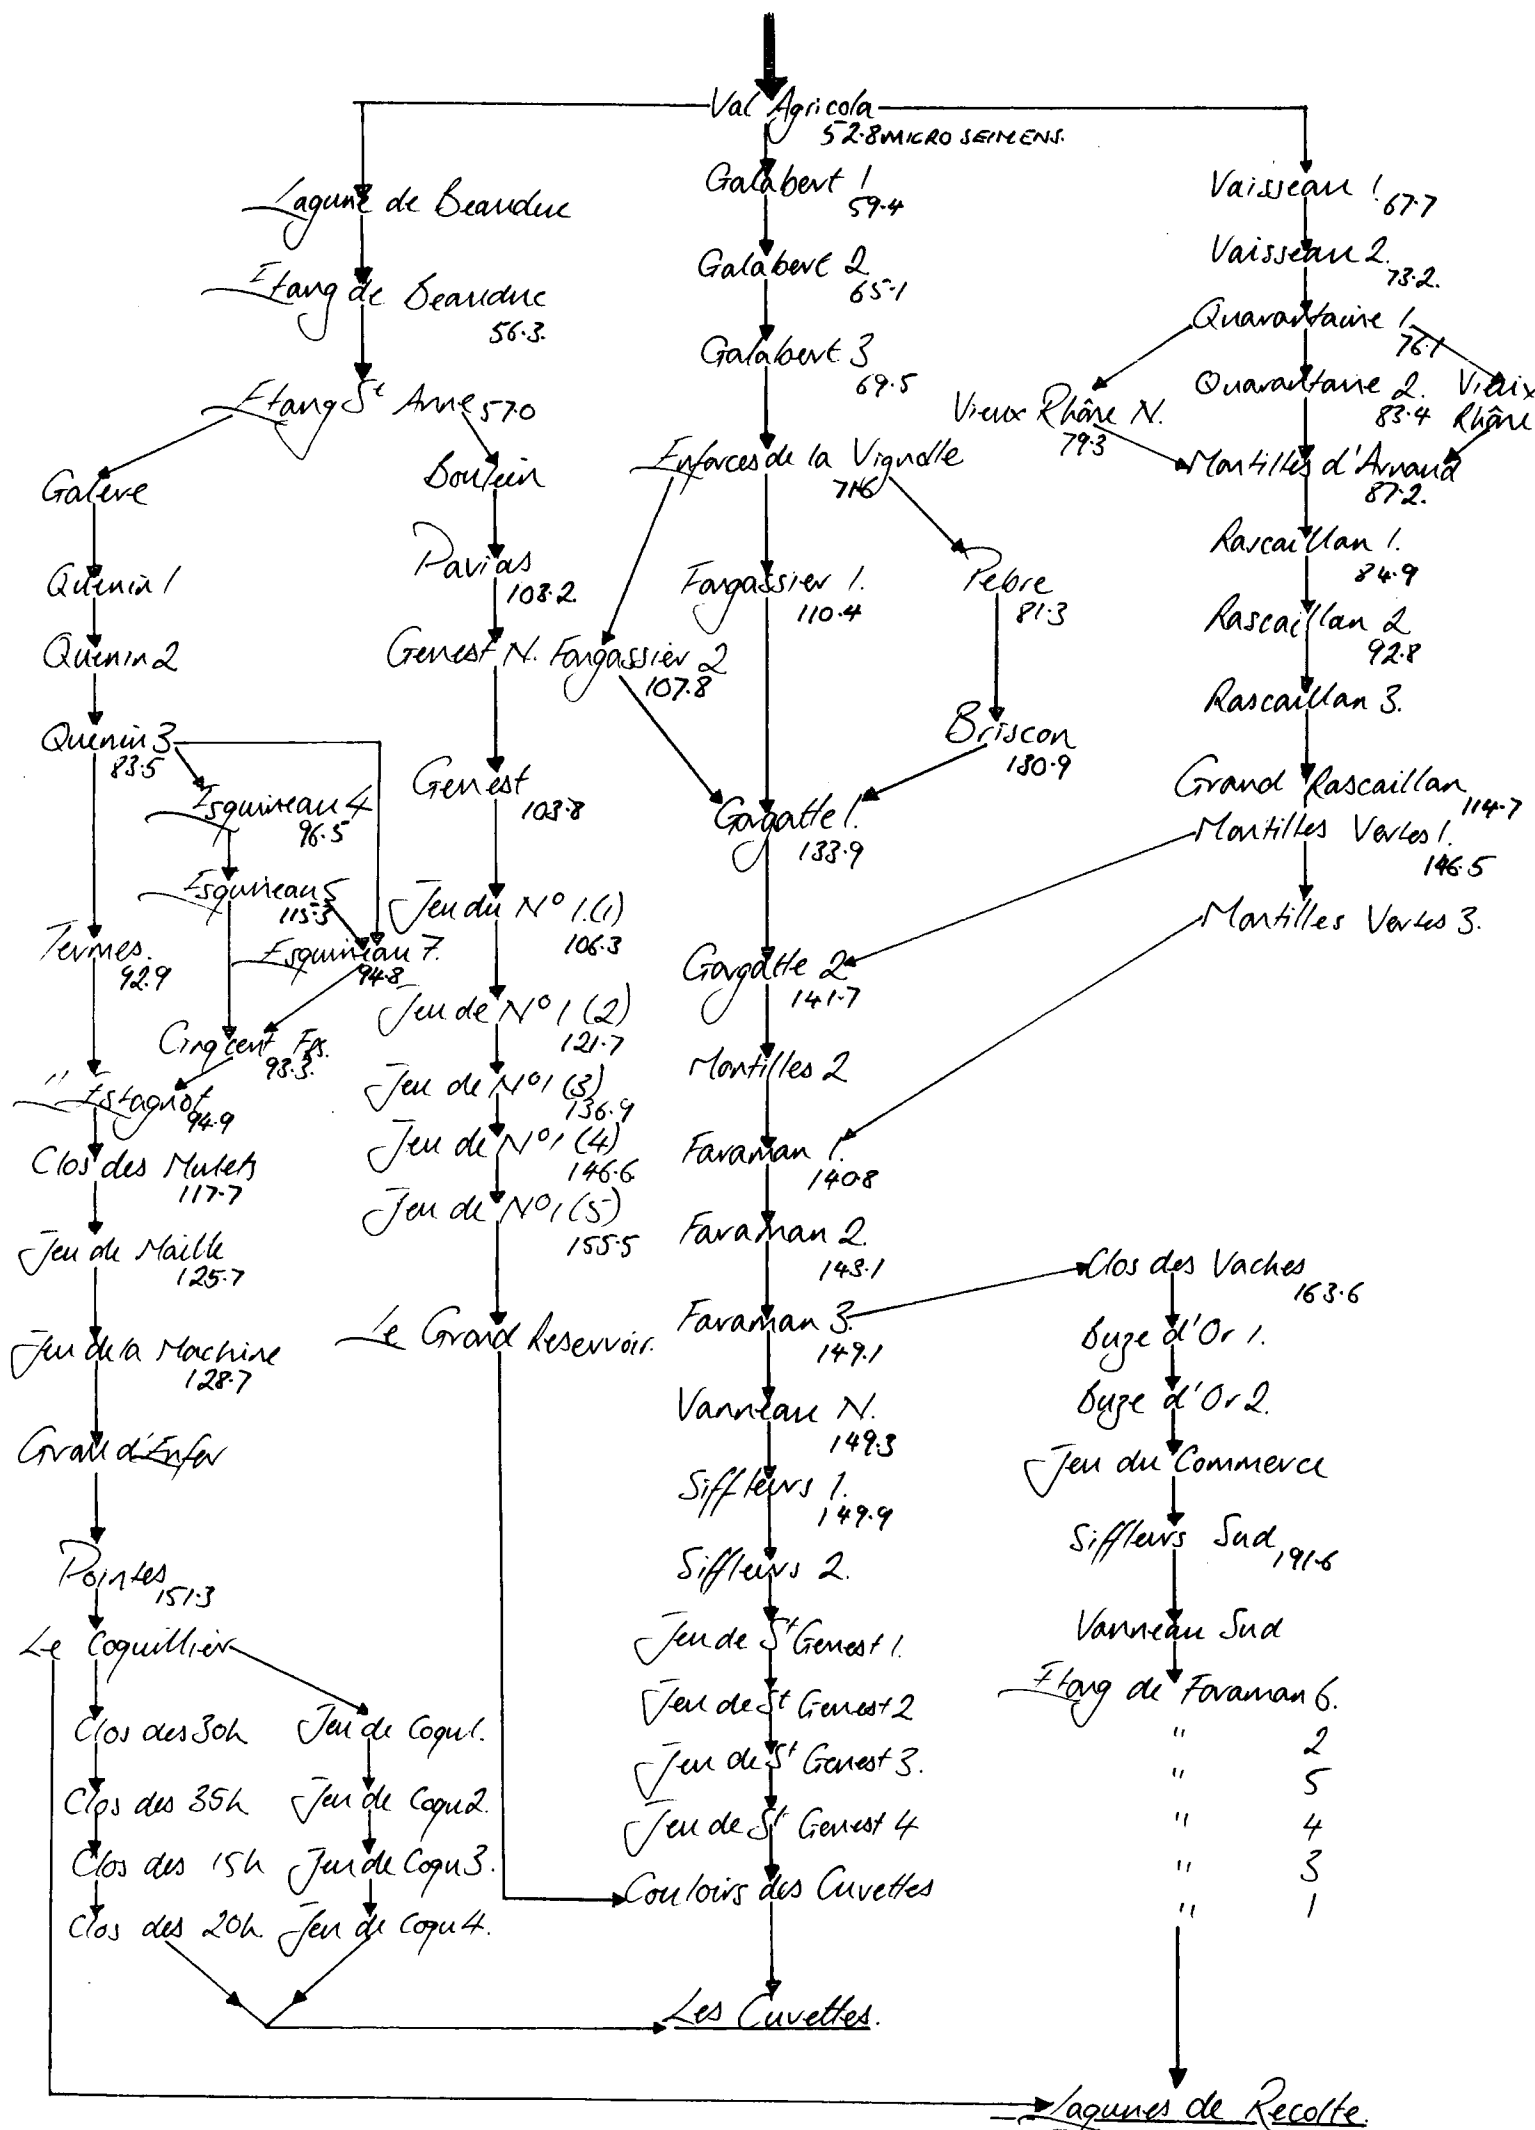 Val Agricola
52.8 MICRO SEIMENS.
Lagune de Beauduc
Etang de Beauduc
56.3.
Etang St Anne 57.0
Galère
Quenin 1
Quenin 2
Quenin 3
83.5
Esquineau 4
96.5
Esquineau 5
115.3
Esquineau 7.
94.8
Termes.
92.9
Cinqcent Frs.
93.3.
L'Estagnot
94.9
Clos des Mulets
117.7
Jeu de Maille
125.7
Jeu de la Machine
128.7
Grau d'Enfer
Pointes
151.3
Le Coquillier
Clos des 30h
Clos des 35h
Clos des 15h
Clos des 20h.
Jeu de Coqu 1.
Jeu de Coqu 2.
Jeu de Coqu 3.
Jeu de Coqu 4.
Pavias
108.2
Genest N.
Genest
103.8
Jeu du No 1.(1)
106.3
Jeu de No 1 (2)
121.7
Jeu de No 1 (3)
136.9
Jeu de No 1 (4)
146.6
Jeu de No 1 (5)
155.5
Le Grand Reservoir.
Galabert 1
59.4
Galabert 2
65.1
Galabert 3
69.5
Enforces de la Vignolle
71.6
Fangassier 1.
110.4
Fangassier 2
107.8
Pebre
81.3
Briscon
130.9
Gagatte 1.
133.9
Gargatte 2
141.7
Montilles 2
Faraman 1.
140.8
Faraman 2.
143.1
Faraman 3.
149.1
Vanneau N.
149.3
Siffleurs 1.
149.9
Siffleurs 2.
Jeu de St Genest 1.
Jeu de St Genest 2
Jeu de St Genest 3.
Jeu de St Genest 4
Couloirs des Cuvettes
Les Cuvettes.
Vaisseau 1.
67.7
Vaisseau 2.
73.2.
Quarantaine 1.
76.1
Vieux Rhône N.
79.3
Quarantaine 2.
83.4
Vieux
Rhône
Montilles d'Arnaud
87.2.
Rascaillan 1.
84.9
Rascaillan 2
92.8
Rascaillan 3.
Grand Rascaillan
114.7
Montilles Vertes 1.
146.5
Montilles Vertes 3.
Clos des Vaches
163.6
Buze d'Or 1.
Buze d'Or 2.
Jeu du Commerce
Siffleurs Sud
191.6
Vanneau Sud
Etang de Faraman 6.
" 2
" 5
" 4
" 3
" 1
Lagunes de Recolte.